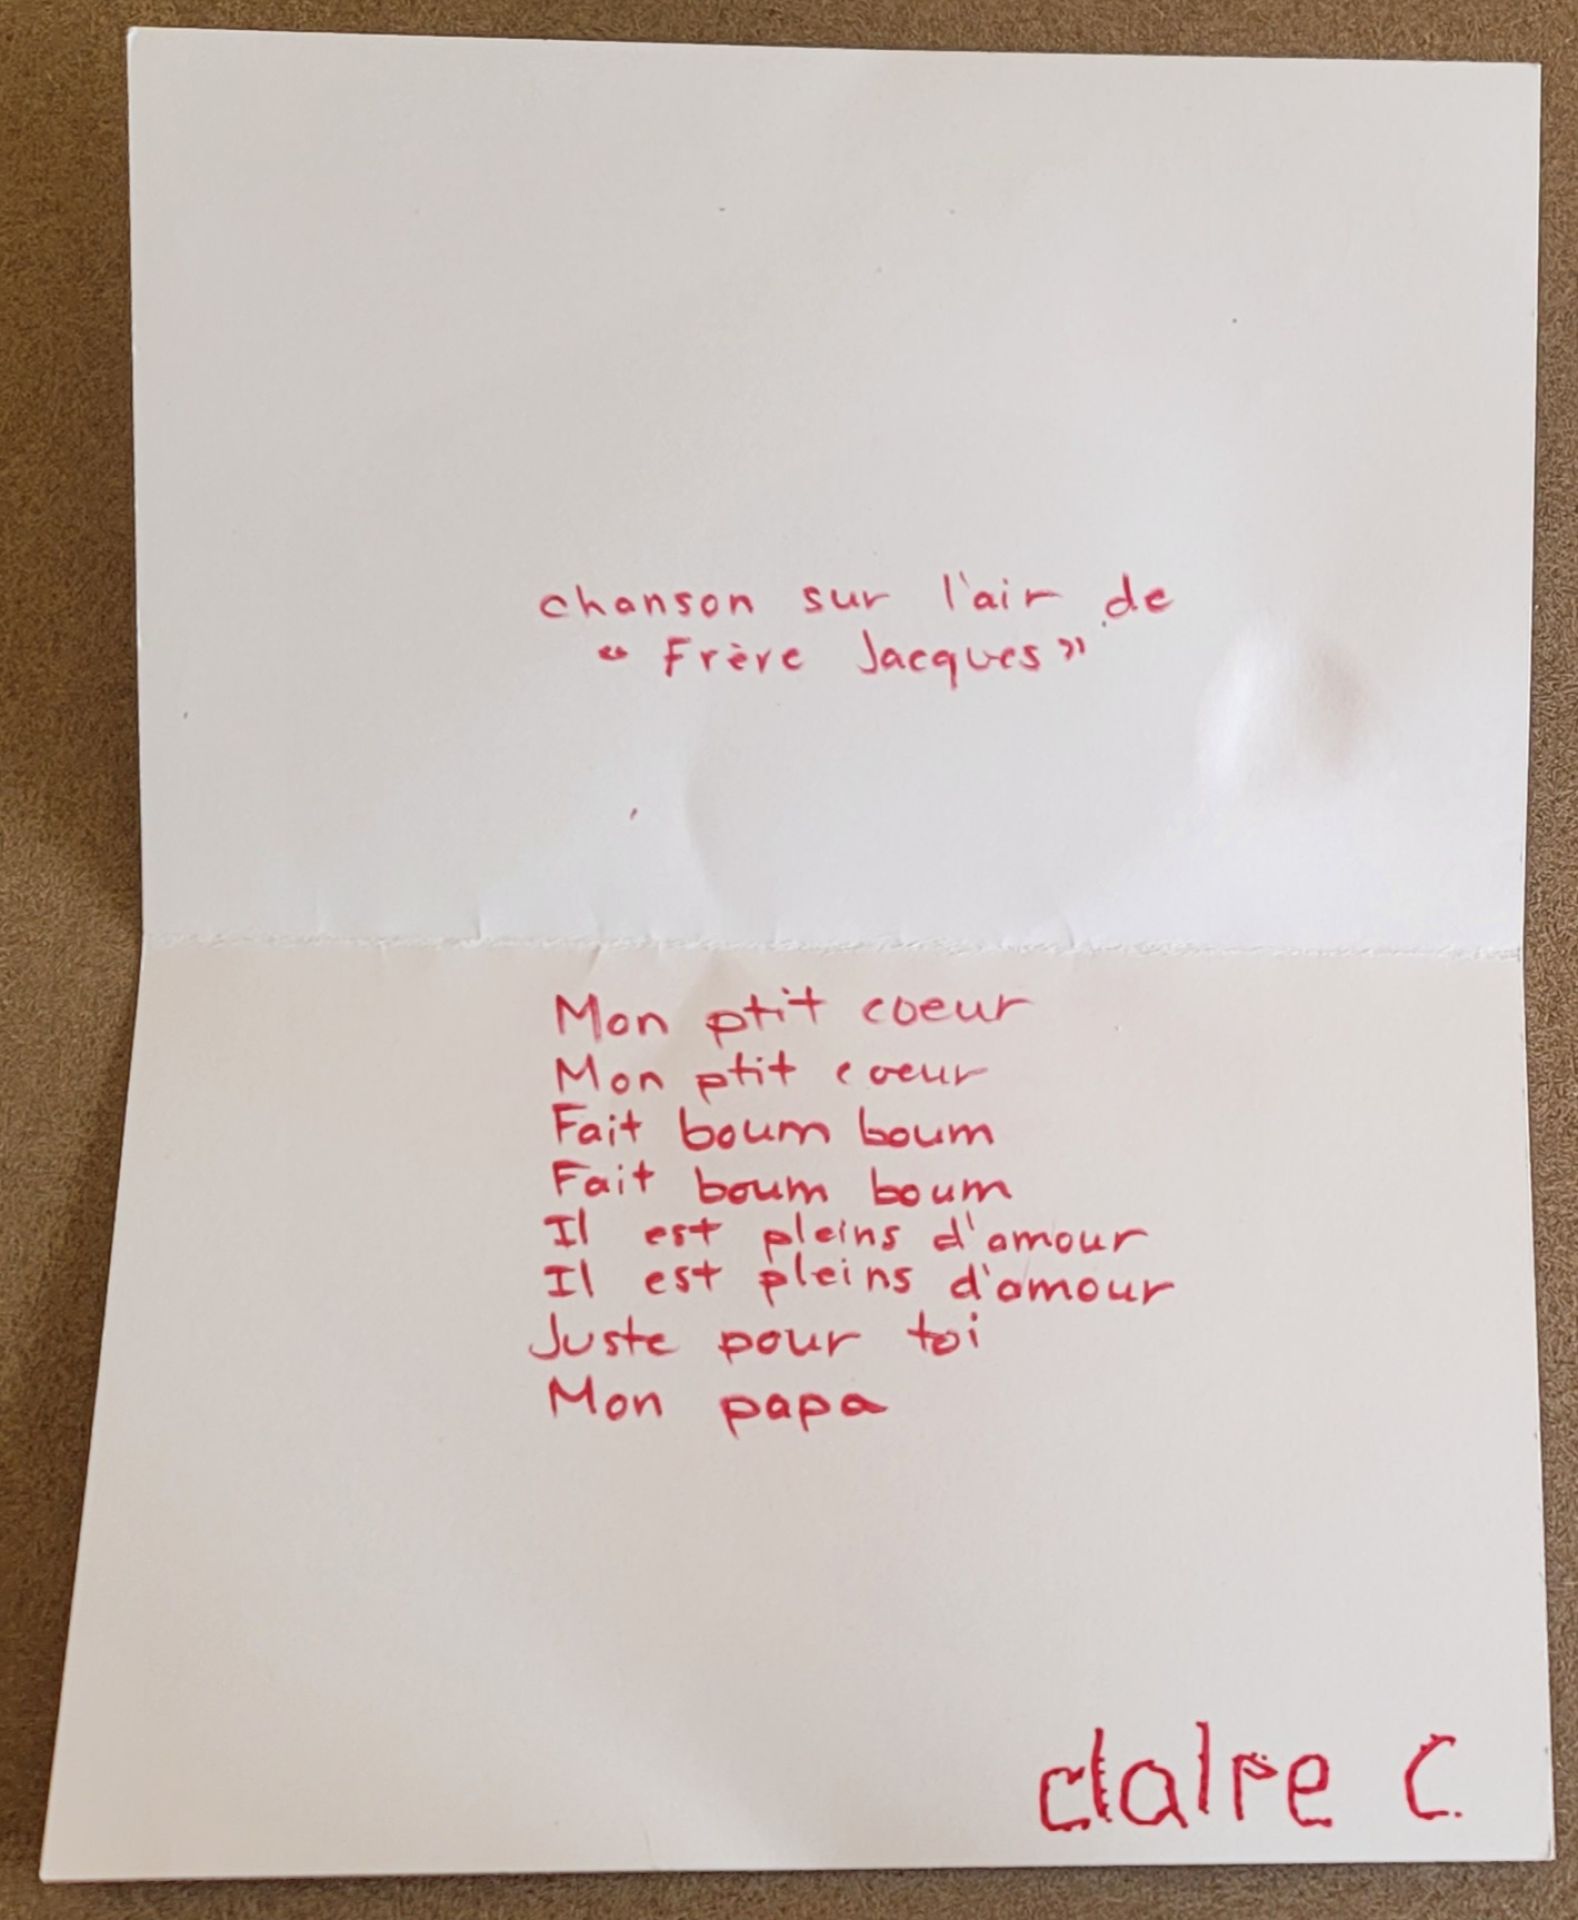 chanson sur l'air de
" Frère Jacques "
Mon ptit coeur
Mon ptit coeur
Fait boum boum
Fait boum boum
Il est pleins d'amour
Il est pleins d'amour
Juste pour toi
Mon papa
claire C.